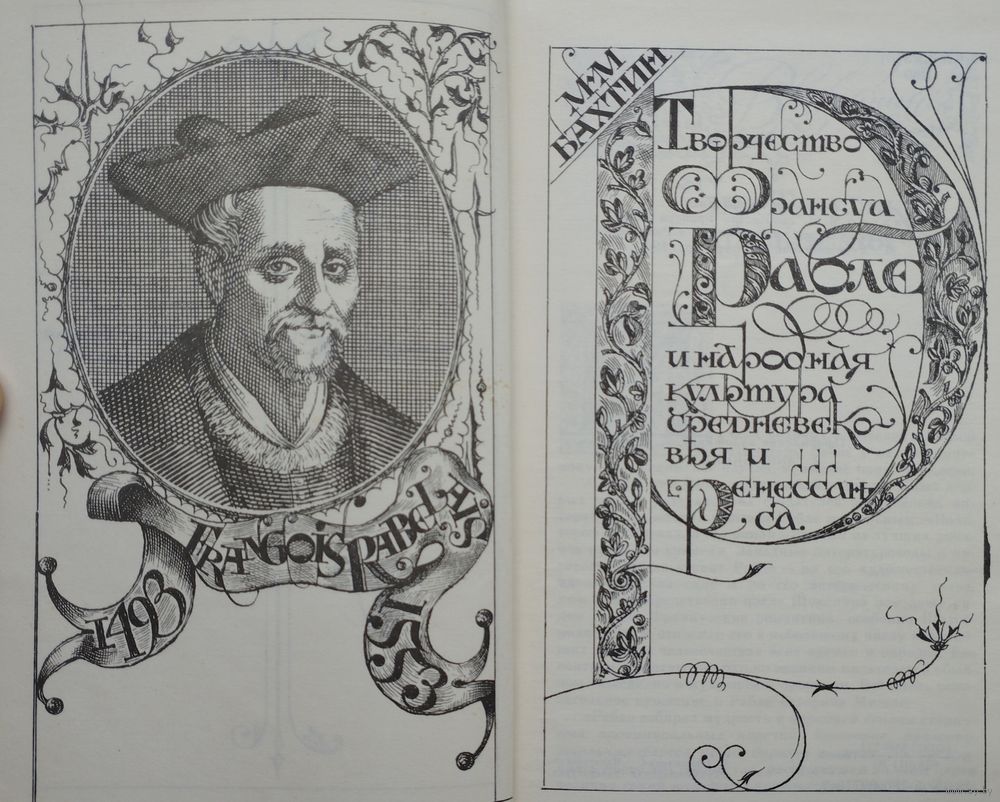 FRANGOIS RABELAIS
1493
1553
М·М
БАХТИН
Творчество
Франсуа
Рабле
и народная
культура
средневеко-
вья и
Ренессан-
са.